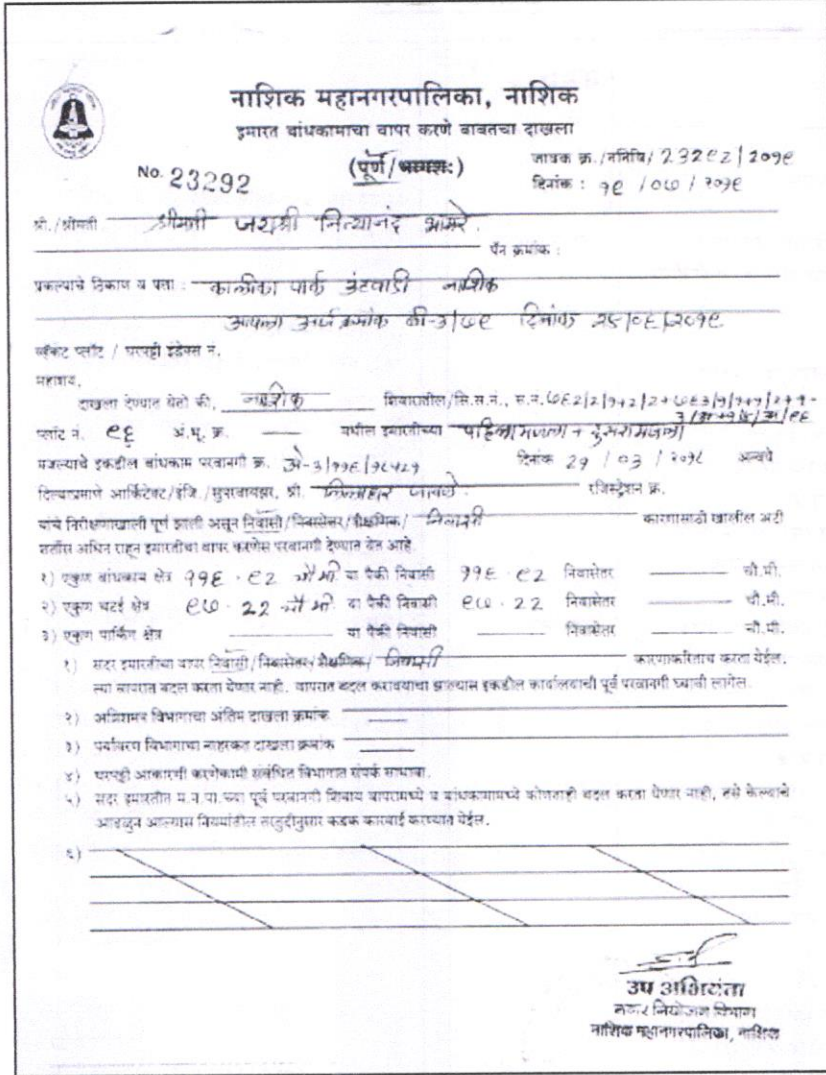 नाशिक महानगरपालिका, नाशिक
इमारत बांधकामाचा वापर करणे बाबतचा दाखला
No. 23292 (पूर्ण/भागशः) जावक क्र./ननिवि/ 232९2/20१९
दिनांक : १९ /०७ / २०१९
श्री./श्रीमती श्रीमती जयश्री नित्यानंद भामरे.
पॅन क्रमांक :
प्रकल्पाचे ठिकाण व पत्ता : काळीका पार्क उंटवाडी नाशिक
आपला अर्ज क्रमांक सी-3/७९ दिनांक २५/०६/२०१९
प्लॉट / घरपट्टी इंडेक्स नं.
महाशय,
दाखला देण्यात येतो की, नाशिक शिवारातील/सि.स.नं., स.नं.
प्लॉट नं. ९६ अं.भू. क्र. — मधील इमारतीच्या पहिला मजला + दुसरा मजला
मजल्याचे इकडील बांधकाम परवानगी क्र. दिनांक 2१ / ०3 / २०१८ अन्वये
दिल्याप्रमाणे आर्किटेक्ट/इंजि./सुपरवायझर, श्री. रजिस्ट्रेशन क्र.
यांचे निरीक्षणाखाली पूर्ण झाली असून निवासी/निवासेतर/शैक्षणिक/ निवासी कारणासाठी खालील अटी
शर्तीस अधिन राहून इमारतीचा वापर करणेस परवानगी देण्यात येत आहे.
१) एकुण बांधकाम क्षेत्र ११९.९2 चौ मी. या पैकी निवासी ११९.९2 निवासेतर ——— चौ.मी.
२) एकुण चटई क्षेत्र ९७.22 चौ मी. या पैकी निवासी ९७.22 निवासेतर ——— चौ.मी.
३) एकुण पार्किंग क्षेत्र ——— या पैकी निवासी ——— निवासेतर ——— चौ.मी.
१) सदर इमारतीचा वापर निवासी/निवासेतर/शैक्षणिक/ निवासी कारणाकरिताच करता येईल.
त्या वापरात बदल करता येणार नाही. वापरात बदल करावयाचा झाल्यास इकडील कार्यालयाची पूर्व परवानगी घ्यावी लागेल.
२) अग्निशमन विभागाचा अंतिम दाखला क्रमांक ———
३) पर्यावरण विभागाचा नाहरकत दाखला क्रमांक ———
४) घरपट्टी आकारणी करणेकामी संबंधित विभागात संपर्क साधावा.
५) सदर इमारतीत म.न.पा.च्या पूर्व परवानगी शिवाय वापरामध्ये व बांधकामामध्ये कोणताही बदल करता येणार नाही, तसे केल्याचे
आढळुन आल्यास नियमांतील तरतुदीनुसार कडक कारवाई करण्यात येईल.
६)
उप अभियंता
नगर नियोजन विभाग
नाशिक महानगरपालिका, नाशिक